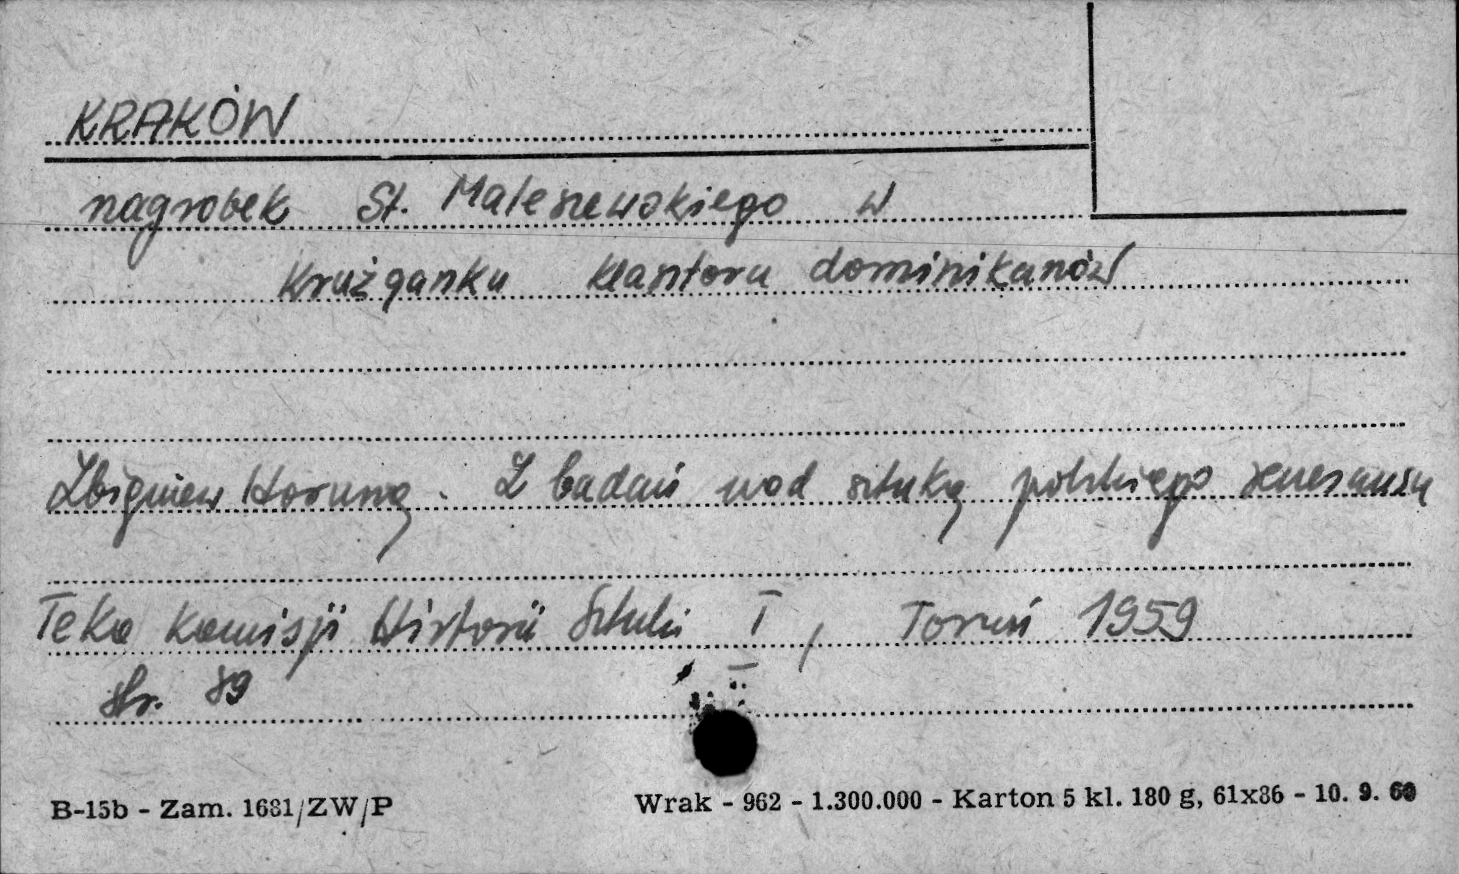 KRAKÓW
nagrobek St. Maleszewskiego w
krużganku klasztoru dominikanów
Zbigniew Hornung. Z badań nad sztuką polskiego renesansu
Teka Komisji Historii Sztuki I, Toruń 1959
str. 89
B-15b - Zam. 1681/ZW/P
Wrak - 962 - 1.300.000 - Karton 5 kl. 180 g, 61x86 - 10. 9. 60